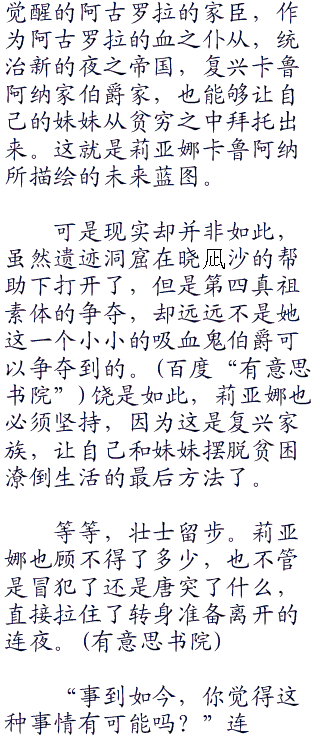 觉醒的阿古罗拉的家臣，作
为阿古罗拉的血之仆从，统
治新的夜之帝国，复兴卡鲁
阿纳家伯爵家，也能够让自
己的妹妹从贫穷之中拜托出
来。这就是莉亚娜卡鲁阿纳
所描绘的未来蓝图。
可是现实却并非如此，
虽然遗迹洞窟在晓凪沙的帮
助下打开了，但是第四真祖
素体的争夺，却远远不是她
这一个小小的吸血鬼伯爵可
以争夺到的。(百度“有意思
书院”)饶是如此，莉亚娜也
必须坚持，因为这是复兴家
族，让自己和妹妹摆脱贫困
潦倒生活的最后方法了。
等等，壮士留步。莉亚
娜也顾不得了多少，也不管
是冒犯了还是唐突了什么，
直接拉住了转身准备离开的
连夜。(有意思书院)
“事到如今，你觉得这
种事情有可能吗？”连